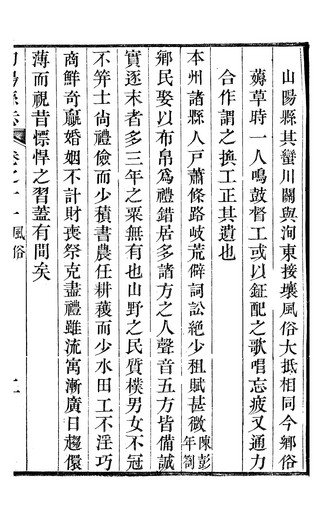 山陽縣其蠻川關與洵東接壤風俗大抵相同今鄉俗
薅草時一人鳴鼓督工或以鉦配之歌唱忘疲又通力
合作謂之換工正其遺也
本州諸縣人戸蕭條路岐荒僻詞訟絶少租賦甚微陳彭年劄
鄉民娶以布帛爲禮錯居多諸方之人聲音五方皆備誠
實逐末者多三年之粟無有也山野之民質樸男女不冠
不笄士尙禮儉而少積書農任耕穫而少水田工不淫巧
商鮮奇贏婚姻不計財喪祭克盡禮雖流寓漸廣日趨儇
薄而視昔慓悍之習蓋有間矣
卷之十一 風俗 二